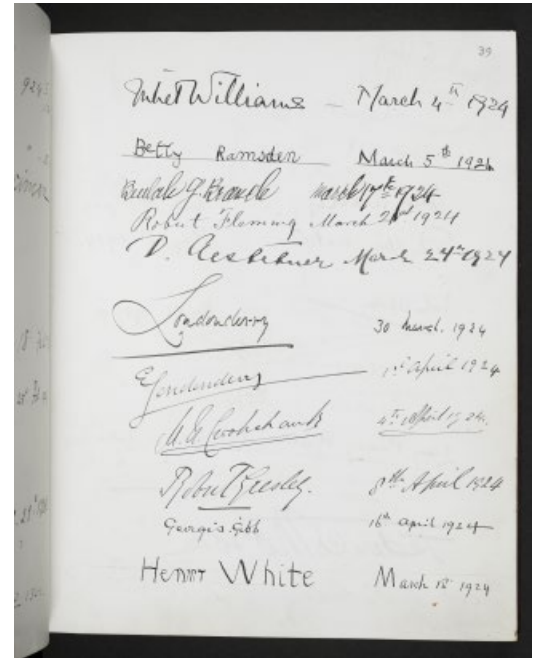 39
Juliet Williams - March 4th 1924
Betty Ramsden March 5th 1924
Beulah G. March 17th 1924
Robert Fleming March 21st 1924
D. March 24th 1924
Londonderry 30 March. 1924
E Londonderry 1st April 1924
4th April 1924.
Robert 8th April 1924
George S. Gibb 16th April 1924
Henry White March 18 1924